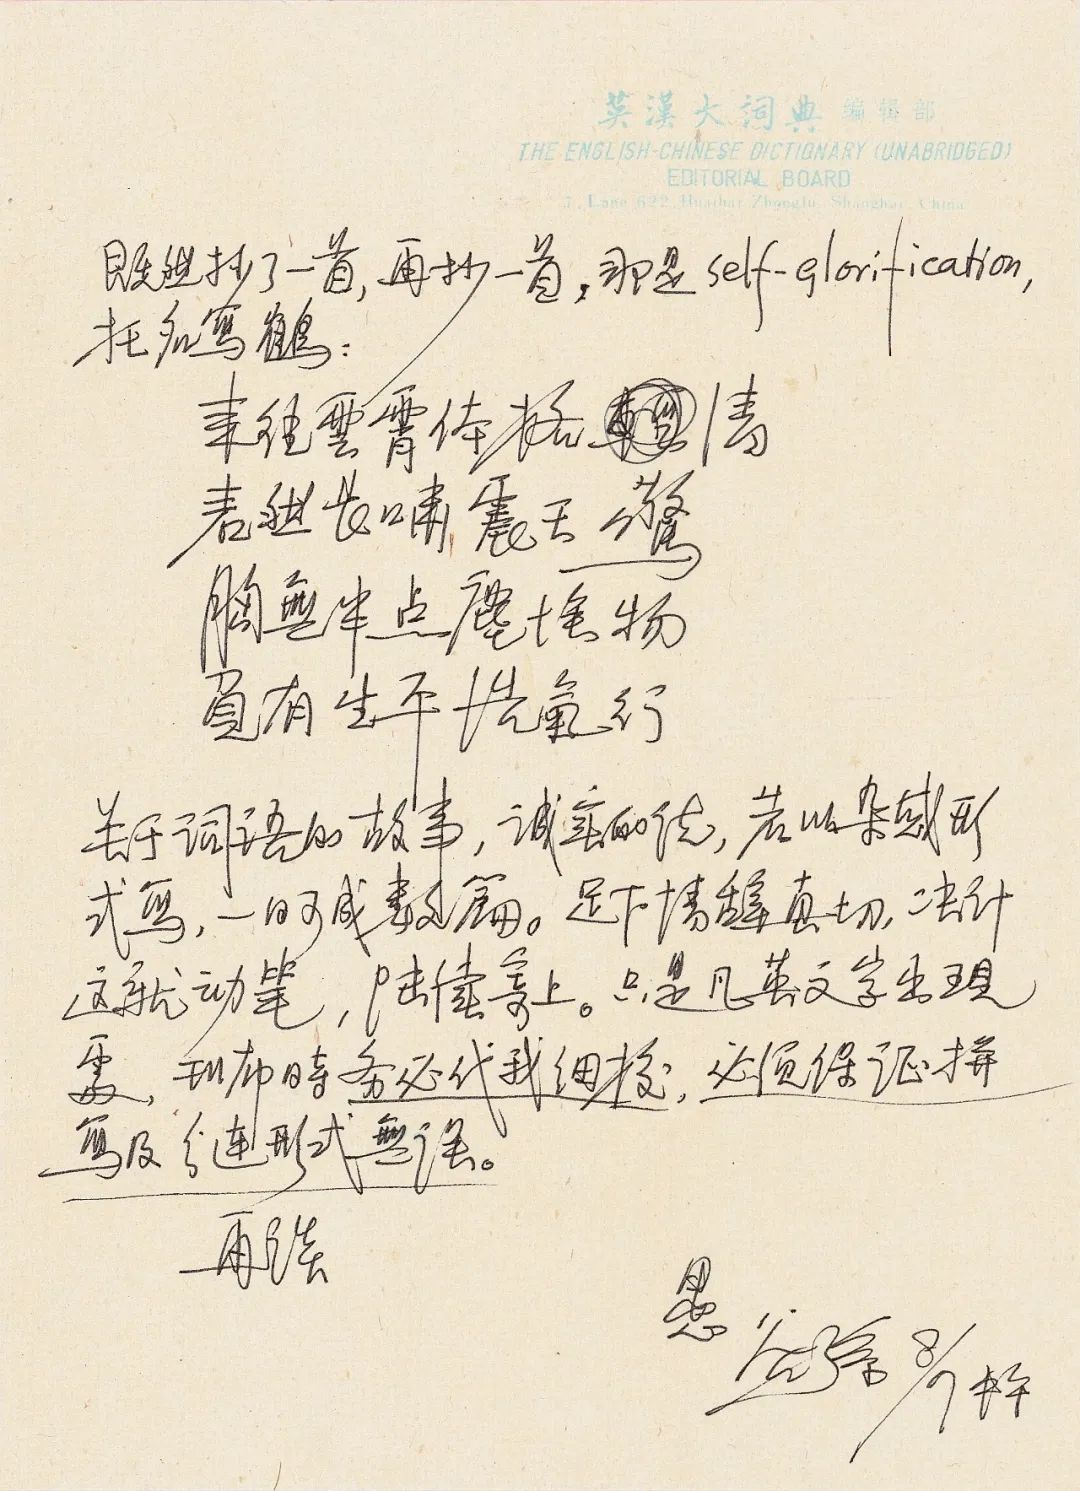 英漢大词典 编辑部
THE ENGLISH-CHINESE DICTIONARY (UNABRIDGED)
EDITORIAL BOARD
7, Lane 622, Huaihai Zhonglu, Shanghai, China
既然抄了一首,再抄一首,那是 self-glorification,
托名寫鶴:
来往雲霄体格清
表然長嘯震天驚
胸無半点塵堆物
負有生平浩氣行
关于词语的故事,诚实的说,若以杂感形
式寫,一日可成数篇。足下情辭真切,决计
这就动笔,陆續寄上。只是凡英文字出現
處,刊布時务必代我细校,必须保证拼
寫及分連形式無误。
再谈
愚
谷孫 8/7